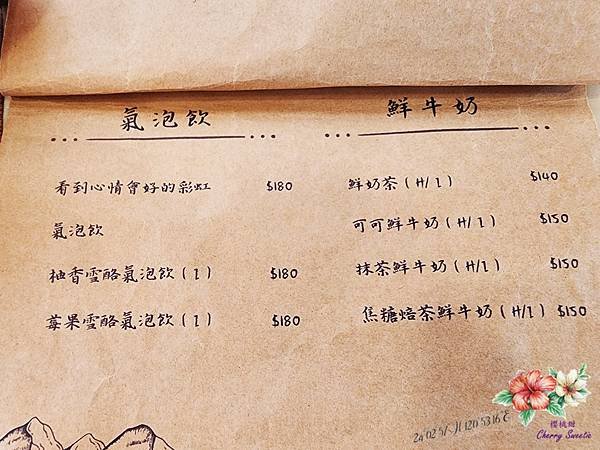 氣泡飲
看到心情會好的彩虹 $180
氣泡飲
柚香雪酪氣泡飲(I) $180
莓果雪酪氣泡飲(I) $180
鮮牛奶
鮮奶茶(H/I) $140
可可鮮牛奶(H/I) $150
抹茶鮮牛奶(H/I) $150
焦糖焙茶鮮牛奶(H/I) $150
櫻桃甜
Cherry Sweetie